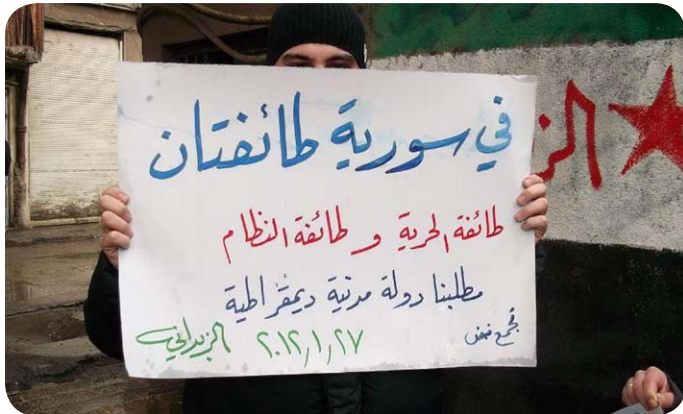 في سورية طائفتان
طائفة الحرية و طائفة النظام
مطلبنا دولة مدنية ديمقراطية
تجمع نبض
الزبداني ٢٠١٢/١/٢٧
الز